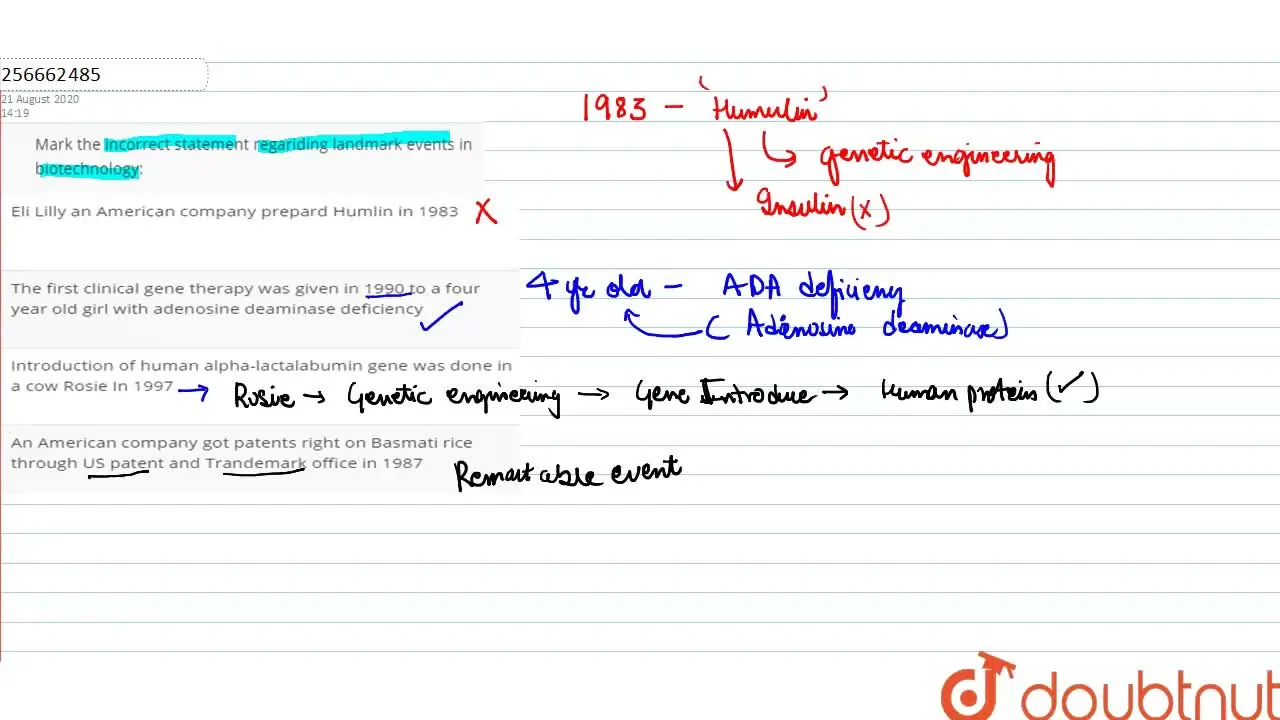 256662485
21 August 2020
14:19
Mark the incorrect statement regariding landmark events in
biotechnology:
Eli Lilly an American company prepard Humlin in 1983 X
1983 – 'Humulin'
genetic engineering
Insulin (x)
The first clinical gene therapy was given in 1990 to a four
year old girl with adenosine deaminase deficiency
4 yr old – ADA deficieny
(Adenosine deaminase)
Introduction of human alpha-lactalabumin gene was done in
a cow Rosie In 1997
Rosie → Genetic engineering → Gene Introduce → Human protein (✓)
An American company got patents right on Basmati rice
through US patent and Trandemark office in 1987
Remarkable event
doubtnut